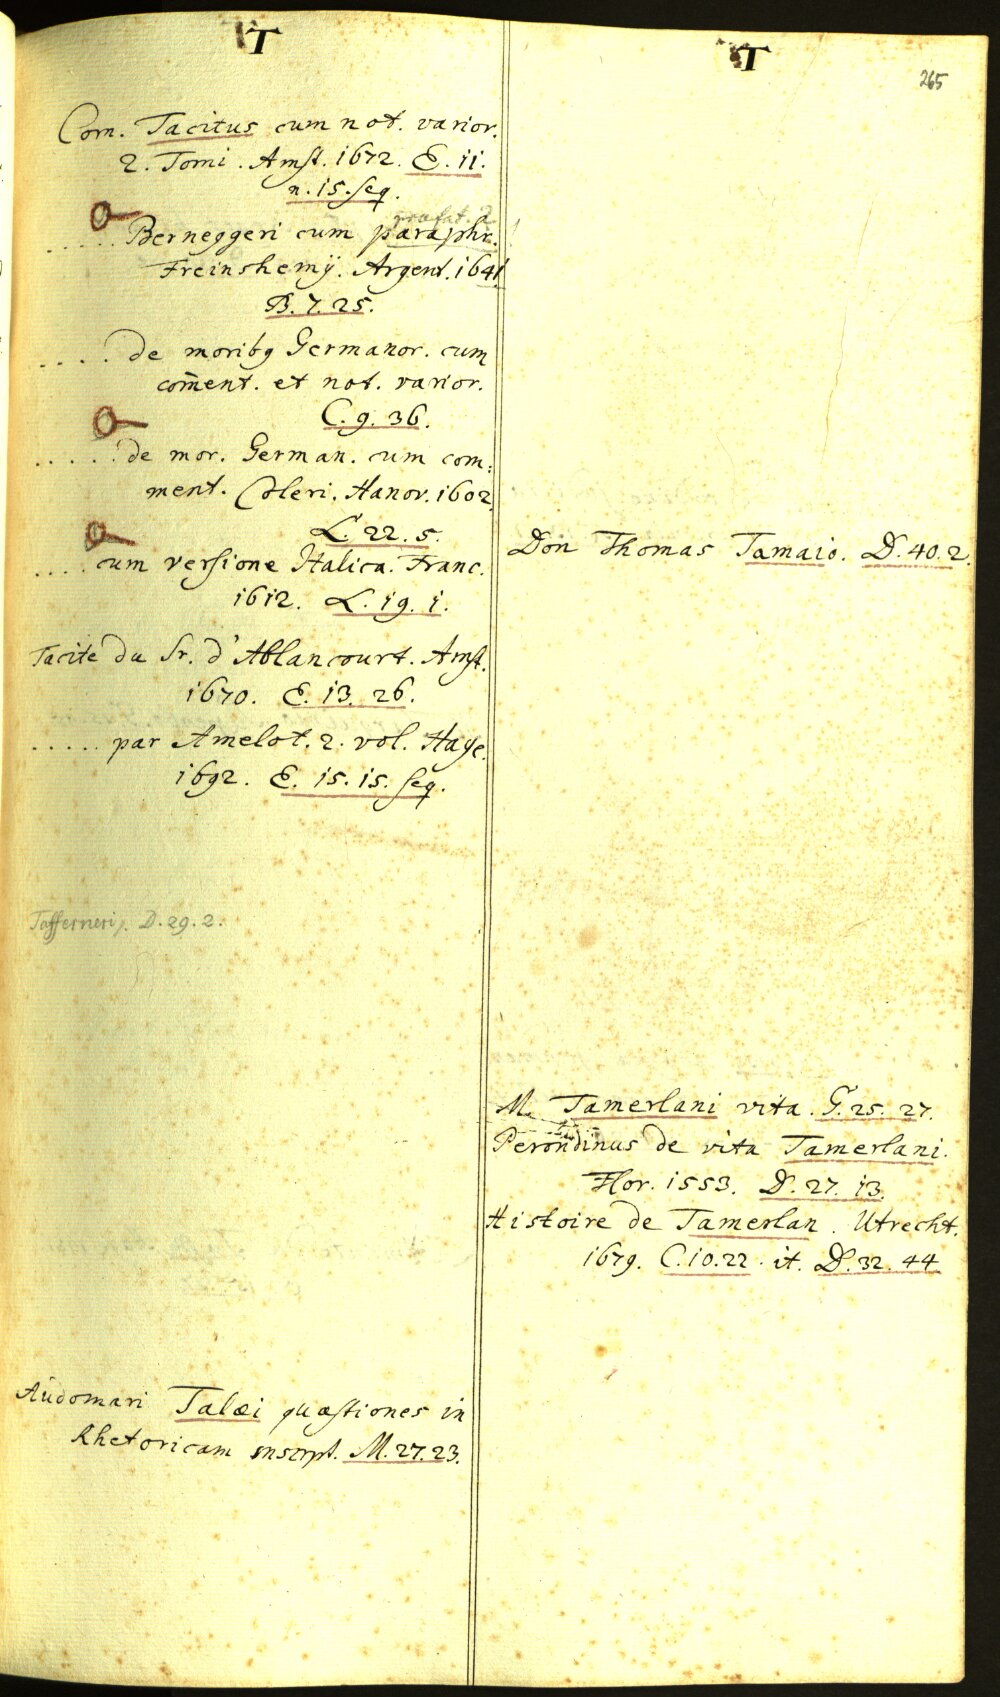 T
Corn. Tacitus cum not. varior.
2. Tomi. Amst. 1672. E. 11.
n. 15. seq.
præfat. 2
..... Berneggeri cum paraphr.
Freinshemÿ. Argent. 1641
B. 7. 25.
.... de moribq Germanor. cum
com̄ent. et not. varior.
C. 9. 36.
..... de mor. German. cum com:
ment. Coleri. Hanov. 1602.
L. 22. 5.
.... cum versione Italica. Franc.
1612. L. 19. 1.
Tacite du Sr. d'Ablancourt. Amst.
1670. E. 13. 26.
..... par Amelot. 2. vol. Haye.
1692. E. 15. 15. seq.
Tafferneri. D. 29. 2.
Audomari Talæi quæstiones in
Rhetoricam inscrpt. M. 27. 23.
T
265
Don Thomas Tamaio. D. 40. 2.
M. Tamerlani vita. G. 25. 27.
Perondinus de vita Tamerlani.
Flor. 1553. D. 27. 13.
Histoire de Tamerlan. Utrecht.
1679. C. 10. 22. it. D. 32. 44.